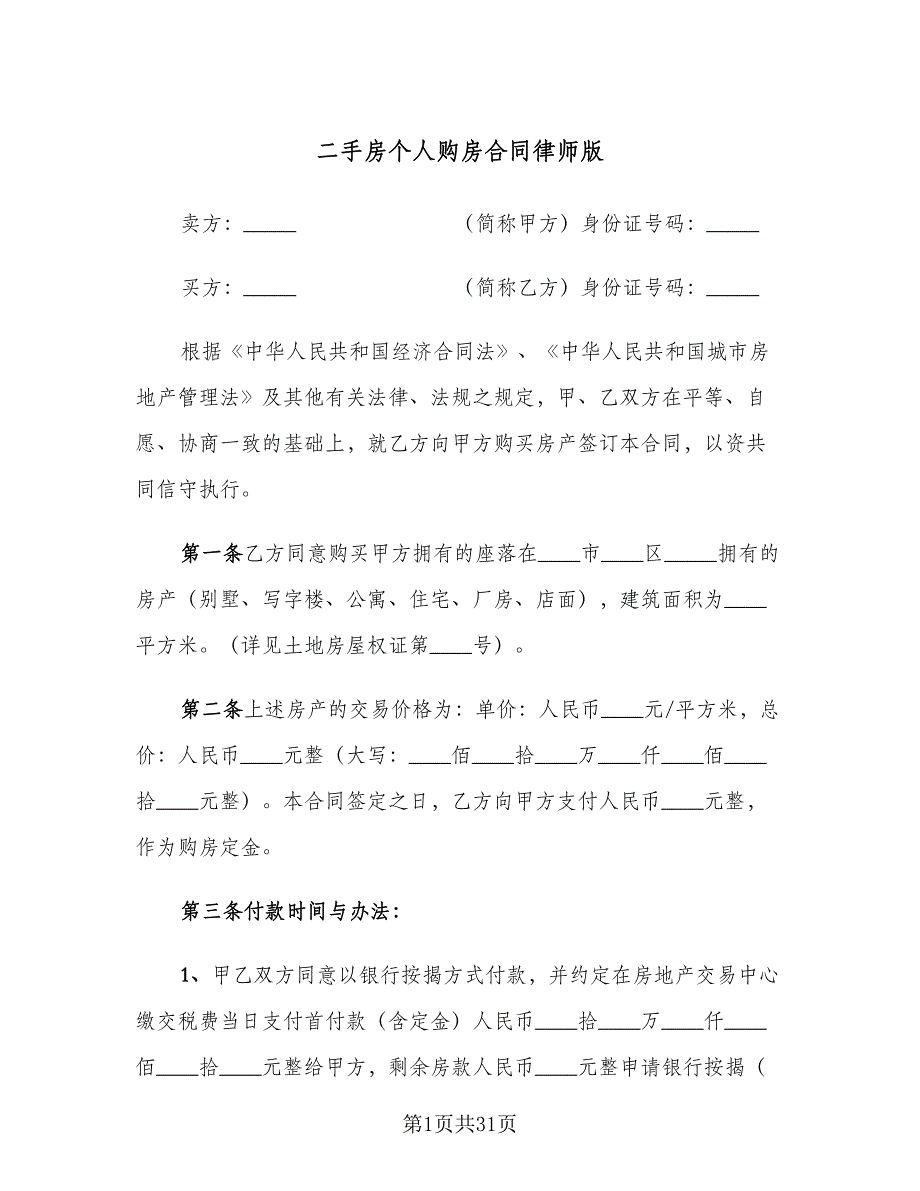 二手房个人购房合同律师版
卖方：_____ （简称甲方）身份证号码：_____
买方：_____ （简称乙方）身份证号码：_____
根据《中华人民共和国经济合同法》、《中华人民共和国城市房
地产管理法》及其他有关法律、法规之规定，甲、乙双方在平等、自
愿、协商一致的基础上，就乙方向甲方购买房产签订本合同，以资共
同信守执行。
第一条乙方同意购买甲方拥有的座落在____市____区_____拥有的
房产（别墅、写字楼、公寓、住宅、厂房、店面），建筑面积为____
平方米。（详见土地房屋权证第____号）。
第二条上述房产的交易价格为：单价：人民币____元/平方米，总
价：人民币____元整（大写：____佰____拾____万____仟____佰____
拾____元整）。本合同签定之日，乙方向甲方支付人民币____元整，
作为购房定金。
第三条付款时间与办法：
1、甲乙双方同意以银行按揭方式付款，并约定在房地产交易中心
缴交税费当日支付首付款（含定金）人民币____拾____万____仟____
佰____拾____元整给甲方，剩余房款人民币____元整申请银行按揭（
第1页共31页